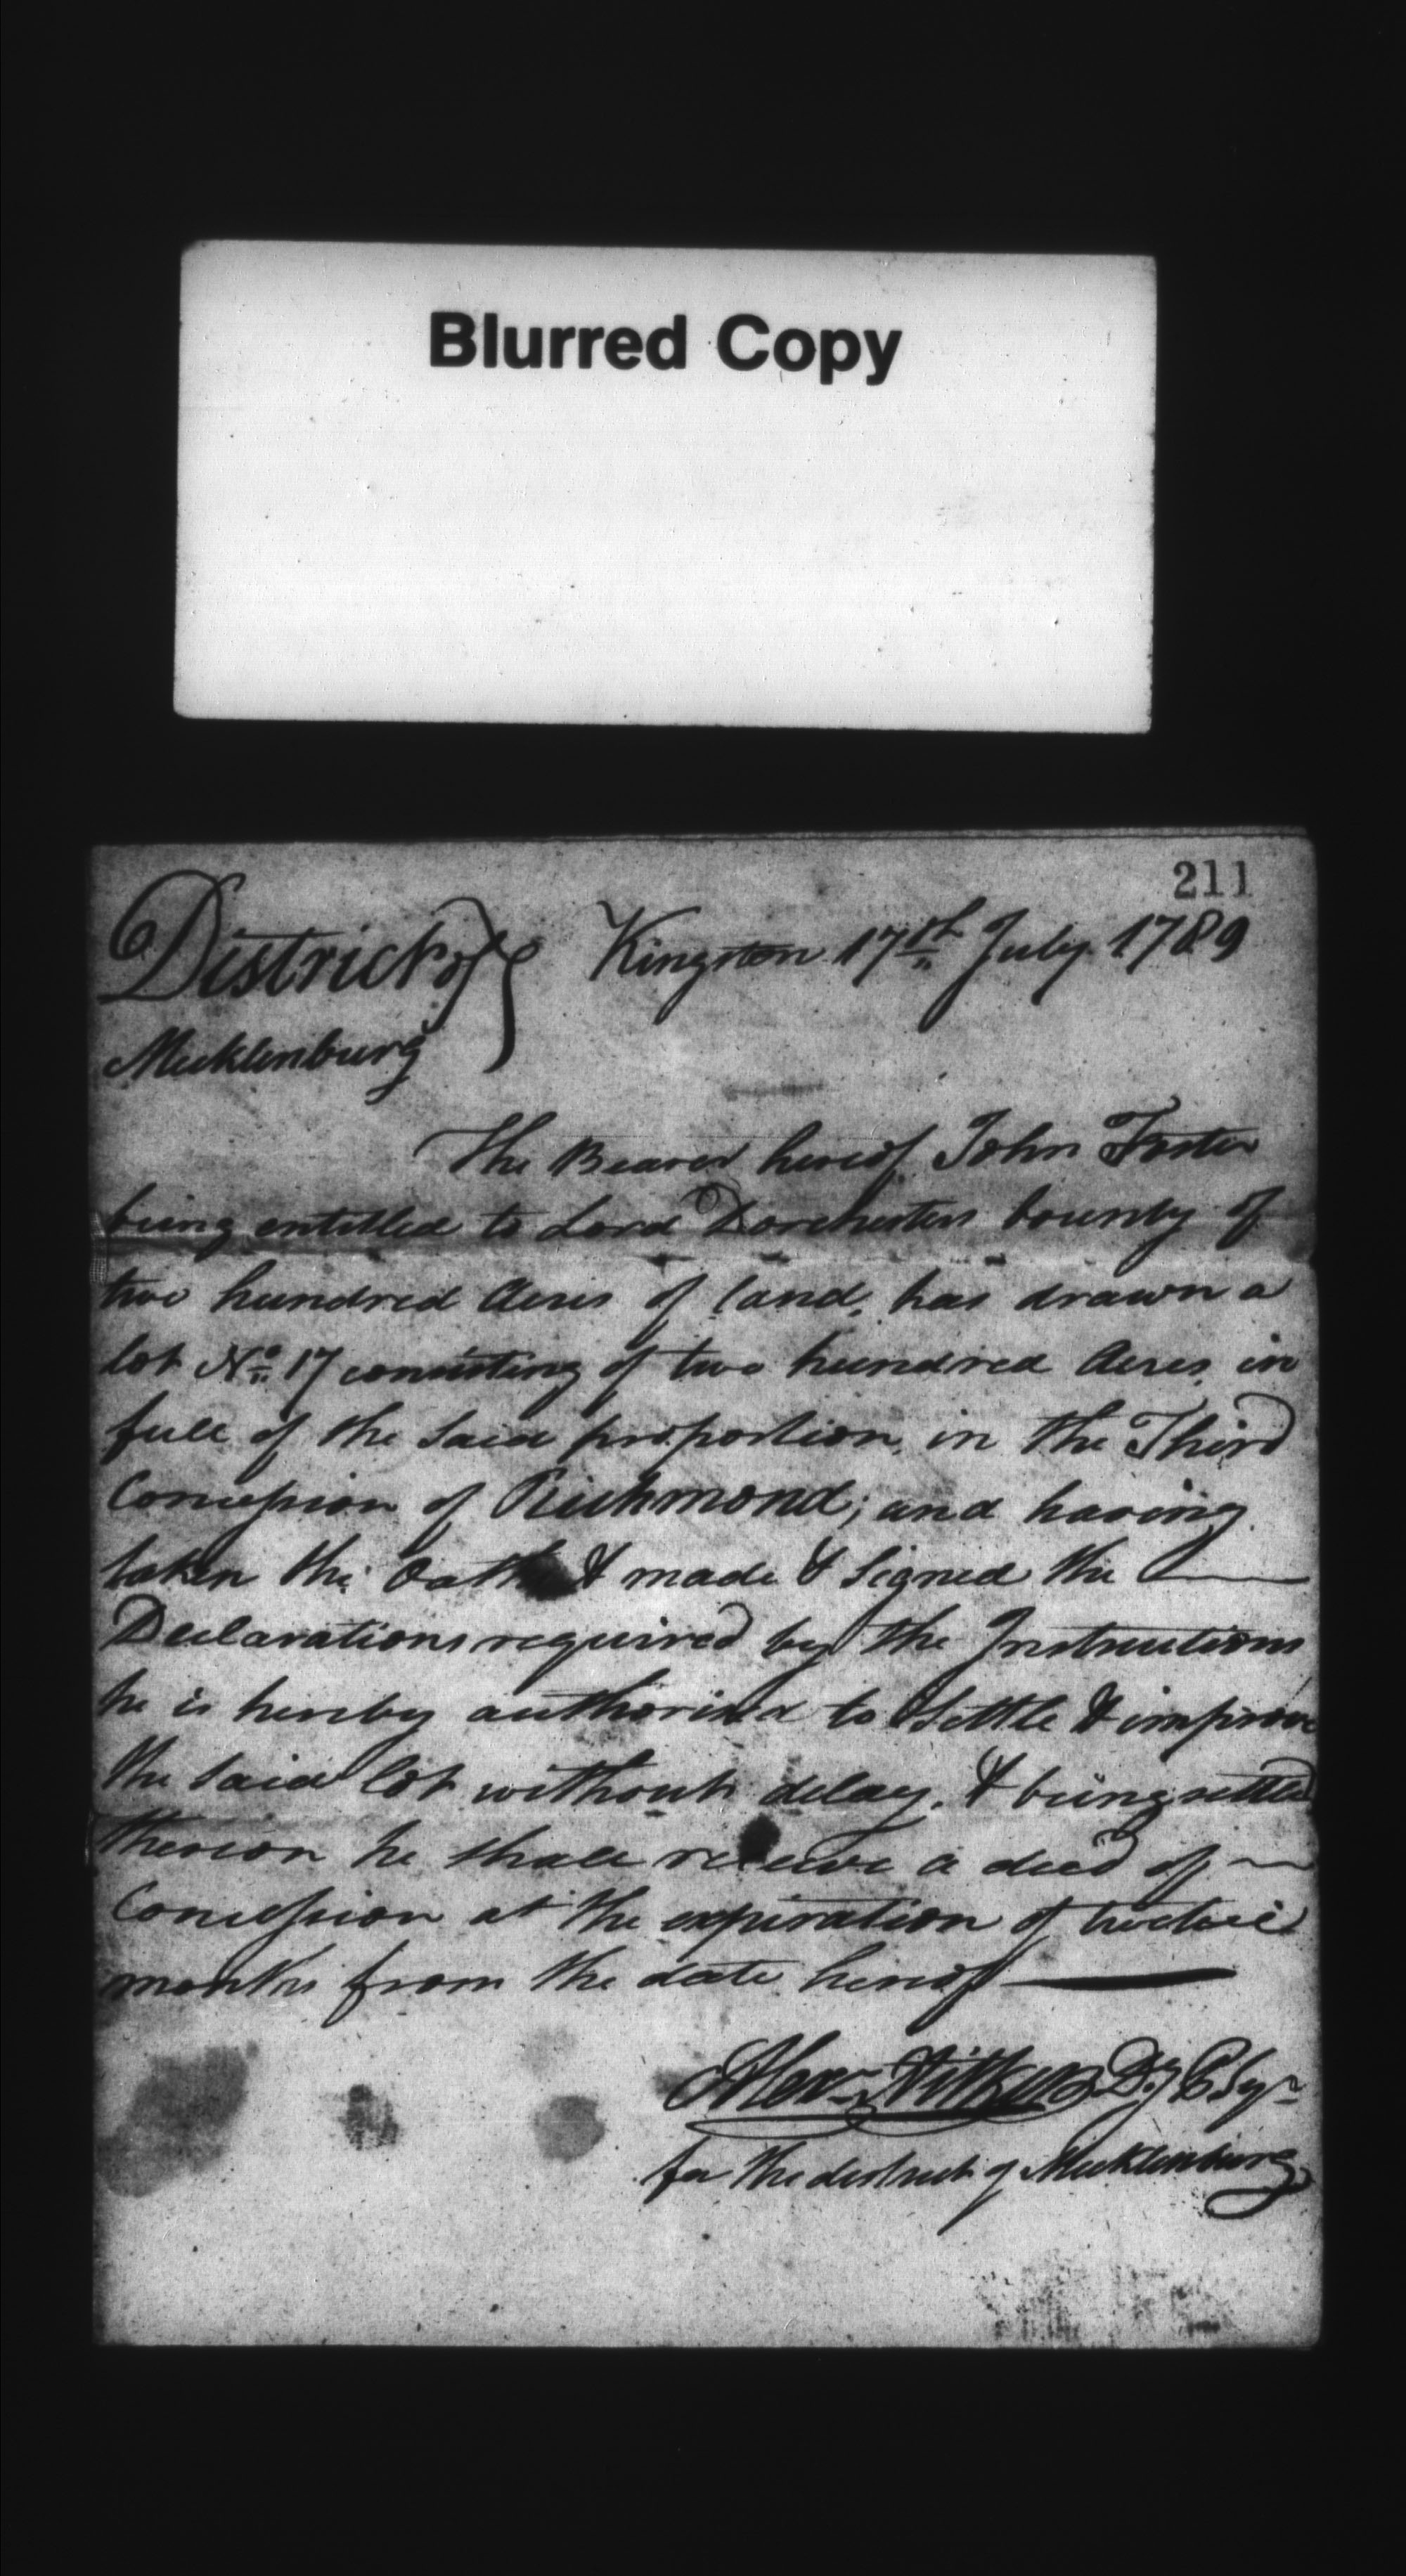 Blurred Copy
211
District of } Kingston 17th July 1789
Mecklenburg
The Bearer hereof John Foster
being entitled to Lord Dorchesters bounty of
two hundred Acres of land, has drawn a
lot No 17 consisting of two hundred Acres in
full of the said proportion, in the Third
Concession of Richmond; and having
taken the Oaths & made & Signed the —
Declarations required by the Instructions
he is hereby authorised to Settle & improve
the said lot without delay, & being settled
thereon he shall receive a deed of —
Concession at the expiration of twelve
months from the date hereof —
Alexr Aitken Dy
for the district of Mecklenburg